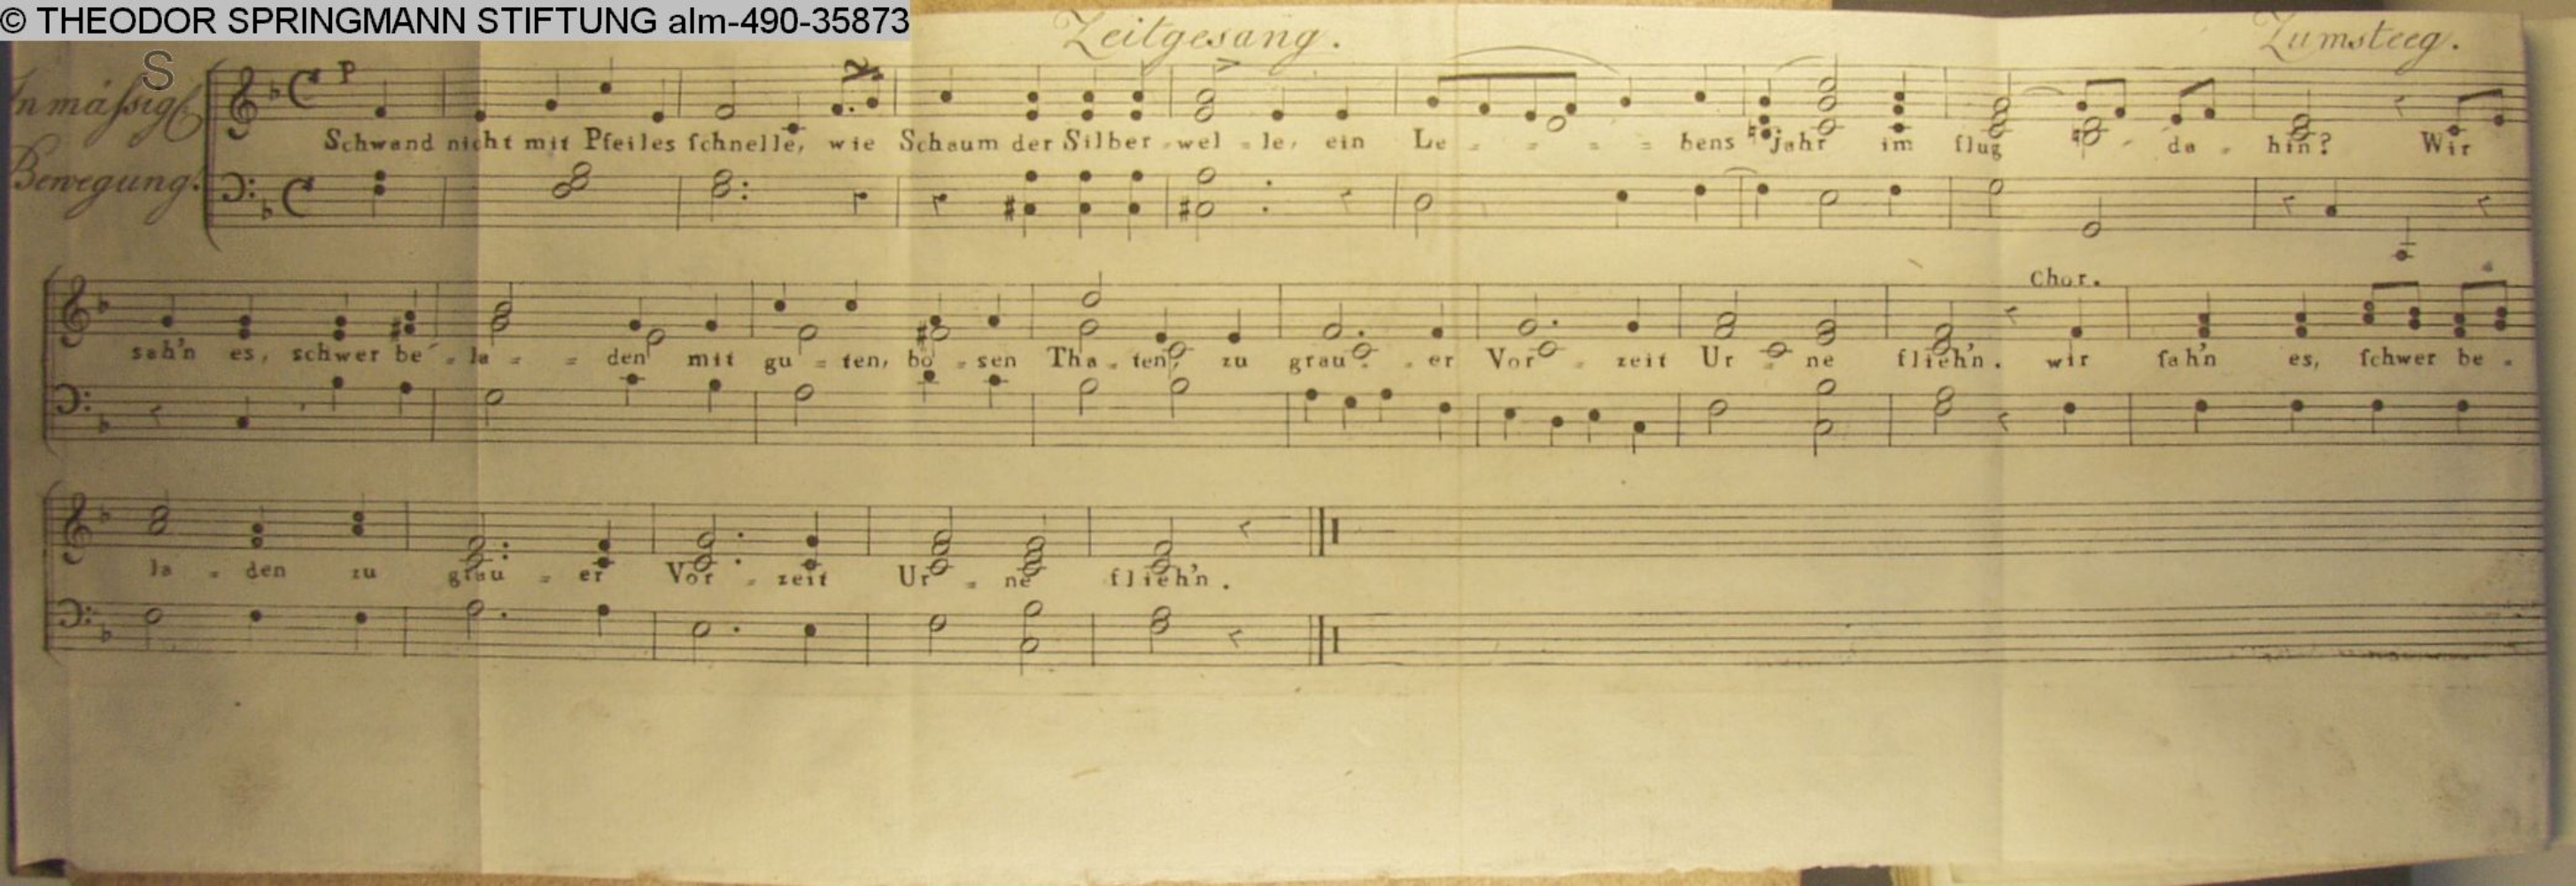 © THEODOR SPRINGMANN STIFTUNG alm-490-35873
S
Zeitgesang. Zumsteeg.
In mässige
Bewegung.
P
Schwand nicht mit Pfeiles ſchnelle, wie Schaum der Silber - wel - le, ein Le - - - - bens jahr im flug - da - hin? Wir
Chor.
sah'n es, schwer be - la - - den mit gu - ten, bö - sen Tha - ten, zu grau - - er Vor - zeit Ur - ne flieh'n. wir ſah'n es, ſchwer be -
la - den zu grau - er Vor - zeit Ur - ne flieh'n.